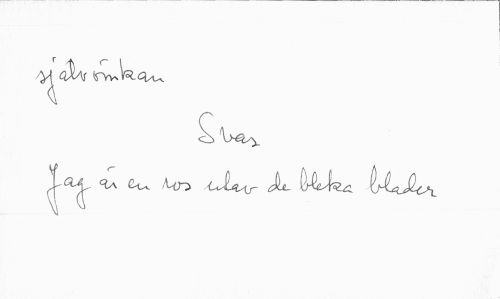 självömkan
Svar
Jag är en ros utav de bleka blader